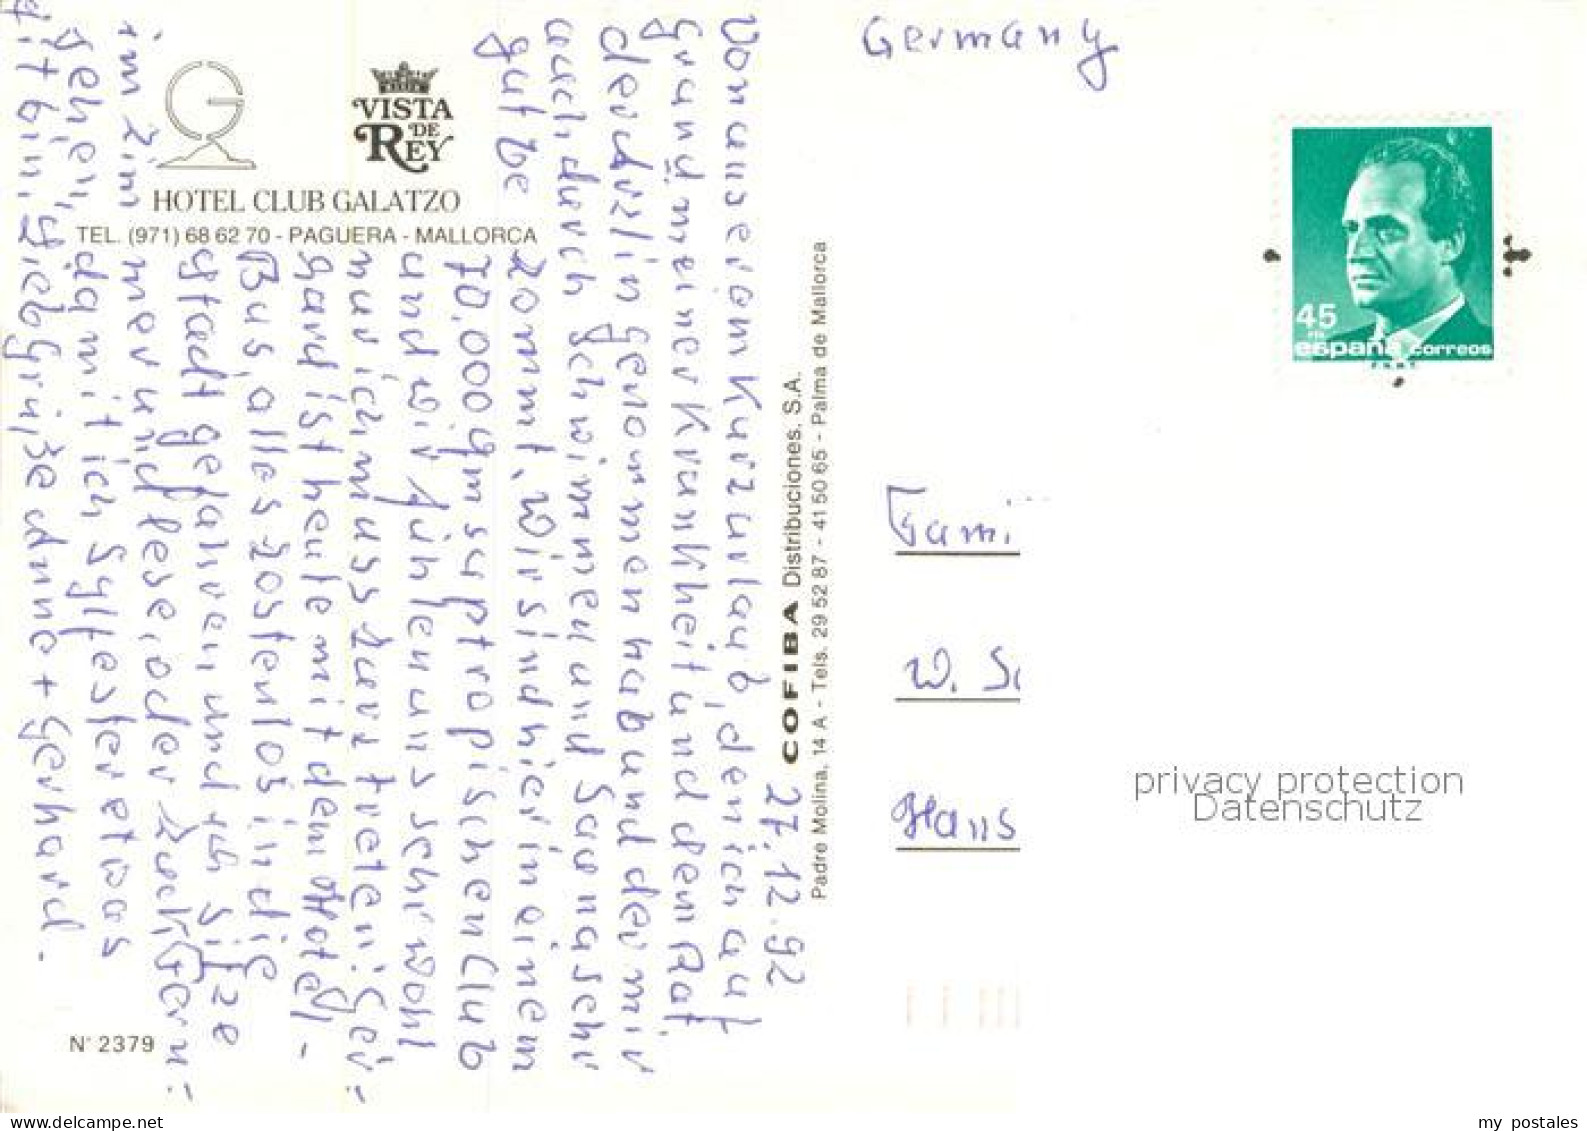 27.12.92
Von unserem Kurzurlaub, den ich auf
grund meiner Krankheit und dem Rat
der Ärzte in genommen hab und der mir
auch durch schwimmen und Sauna sehr
gut be kommt. Wir sind hier in einem
70.000 qm suptropischen Club
und wir fühlen uns sehr wohl
nur ich muss kurz treten. Ger-
hard ist heute mit dem Hotel-
Bus, alles kostenlos in die
Stadt gefahren und ich sitze
im Zim mer und lese, oder Gern
gehen, damit ich Sylvester etwas
fit bin. Liebe Grüße Anne + Gerhard.
VISTA
DE
REY
HOTEL CLUB GALATZO
TEL. (971) 68 62 70 - PAGUERA - MALLORCA
N° 2379
COFIBA Distribuciones. S.A.
Padre Molina, 14 A - Tels. 29 52 87 - 41 50 65 - Palma de Mallorca
Germany
45
PTA
españa correos
F.N.M.T.
Fami
W. Sc
Hans
privacy protection
Datenschutz
my postales